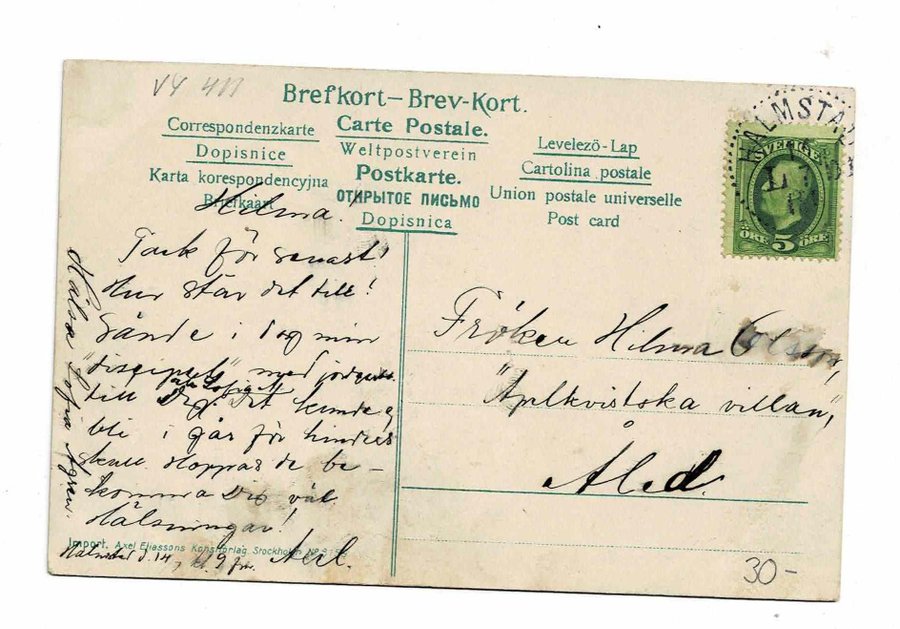 V4 411
Brefkort–Brev-Kort.
Correspondenzkarte
Carte Postale.
Levelezö-Lap
Dopisnice
Weltpostverein
Cartolina postale
Karta korespondencyjna
Postkarte.
Union postale universelle
Briefkaart
ОТКРЫТОЕ ПИСЬМО
Post card
Dopisnica
HALMSTAD
SVERIGE
ÖRE 5 ÖRE
Hilma.
Tack för senast!
Hur står det till!
Sände i dag min
"discipel" med
från Sofia A
till Dig. Det kunde ej
bli i går för hindrets
skull. Hoppas de be-
komma Dig väl.
Hälsningar!
Axel.
Halmstad d. 14, kl. 9 fm.
Hälsa Sofia
Fröken Hilma
"Aplkvistska villan",
Åled.
Import. Axel Eliassons Konstförlag, Stockholm No
30-